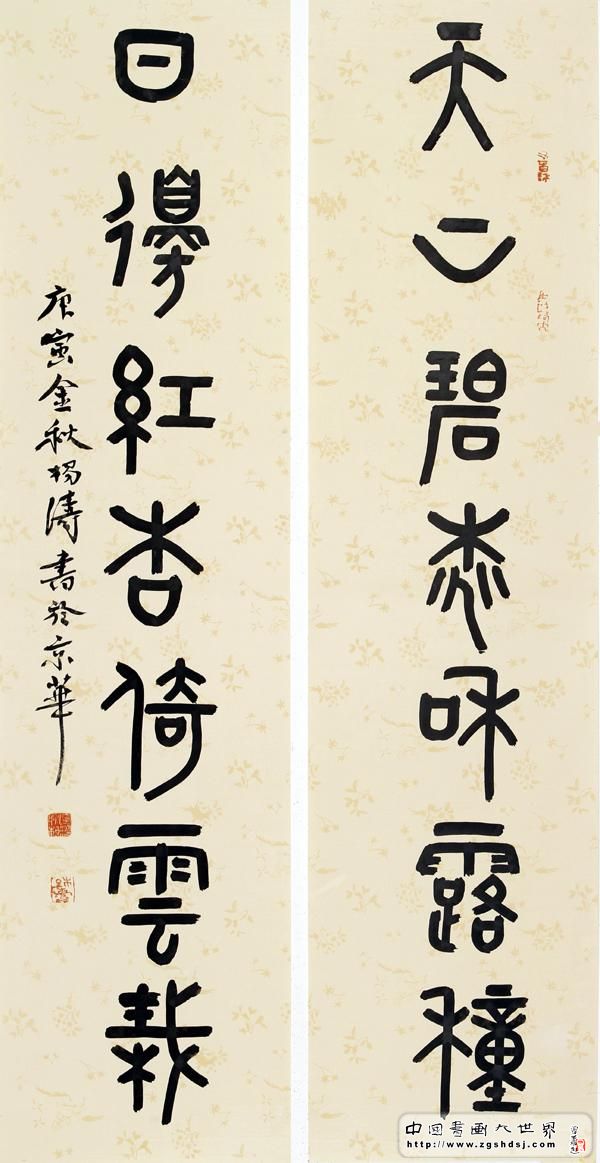 天上碧桃和露種
日邊紅杏倚雲栽
庚寅金秋楊濤書於京華
中国書画大世界
http://www.zgshdsj.com